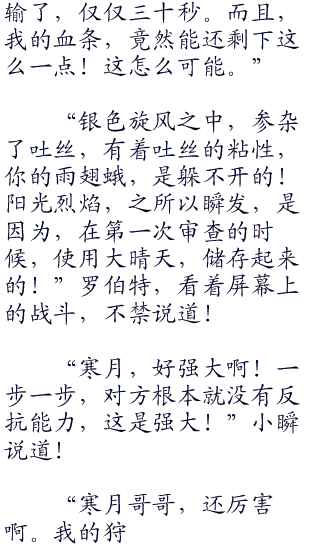 输了，仅仅三十秒。而且，
我的血条，竟然能还剩下这
么一点！这怎么可能。”
“银色旋风之中，参杂
了吐丝，有着吐丝的粘性，
你的雨翅蛾，是躲不开的！
阳光烈焰，之所以瞬发，是
因为，在第一次审查的时
候，使用大晴天，储存起来
的！”罗伯特，看着屏幕上
的战斗，不禁说道！
“寒月，好强大啊！一
步一步，对方根本就没有反
抗能力，这是强大！”小瞬
说道！
“寒月哥哥，还厉害
啊。我的狩